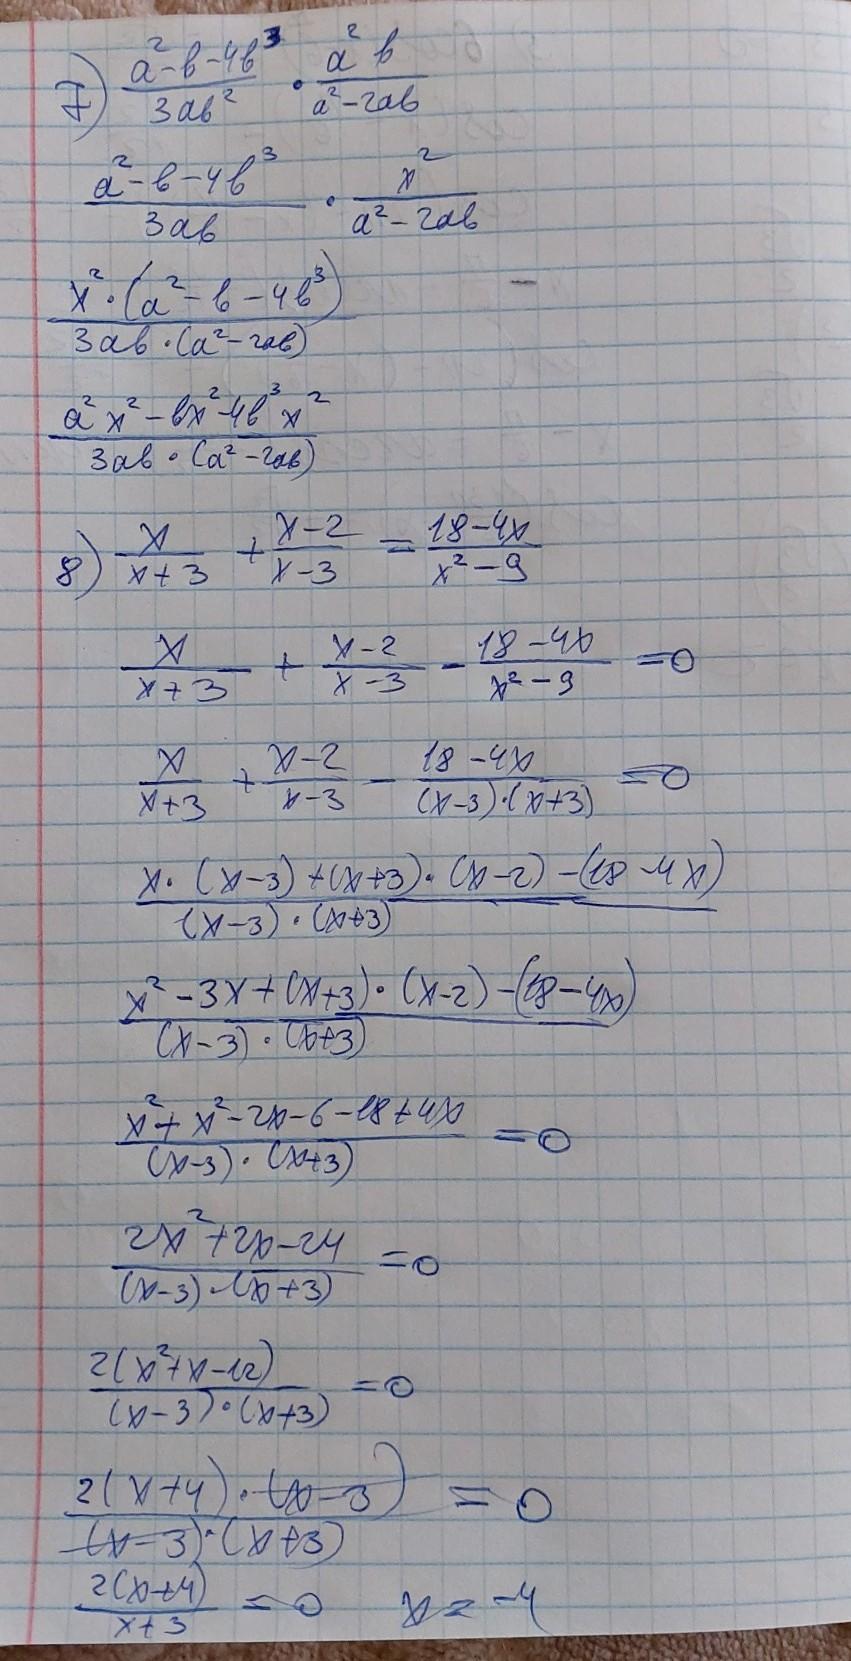 7) (a² - b - 4b³)/(3ab²) · (a² b)/(a² - 2ab)
(a² - b - 4b³)/(3ab) · x²/(a² - 2ab)
(x² · (a² - b - 4b³))/(3ab · (a² - 2ab))
(a² x² - bx² - 4b³ x²)/(3ab · (a² - 2ab))
8) x/(x+3) + (x-2)/(x-3) = (18-4x)/(x²-9)
x/(x+3) + (x-2)/(x-3) - (18-4x)/(x²-9) = 0
x/(x+3) + (x-2)/(x-3) - (18-4x)/((x-3)·(x+3)) = 0
(x·(x-3)+(x+3)·(x-2)-(18-4x))/((x-3)·(x+3))
(x²-3x+(x+3)·(x-2)-(18-4x))/((x-3)·(x+3))
(x²+x²-2x-6-18+4x)/((x-3)·(x+3)) = 0
(2x²+2x-24)/((x-3)·(x+3)) = 0
(2(x²+x-12))/((x-3)·(x+3)) = 0
(2(x+4)·(x-3))/((x-3)·(x+3)) = 0
(2(x+4))/(x+3) = 0 x = -4